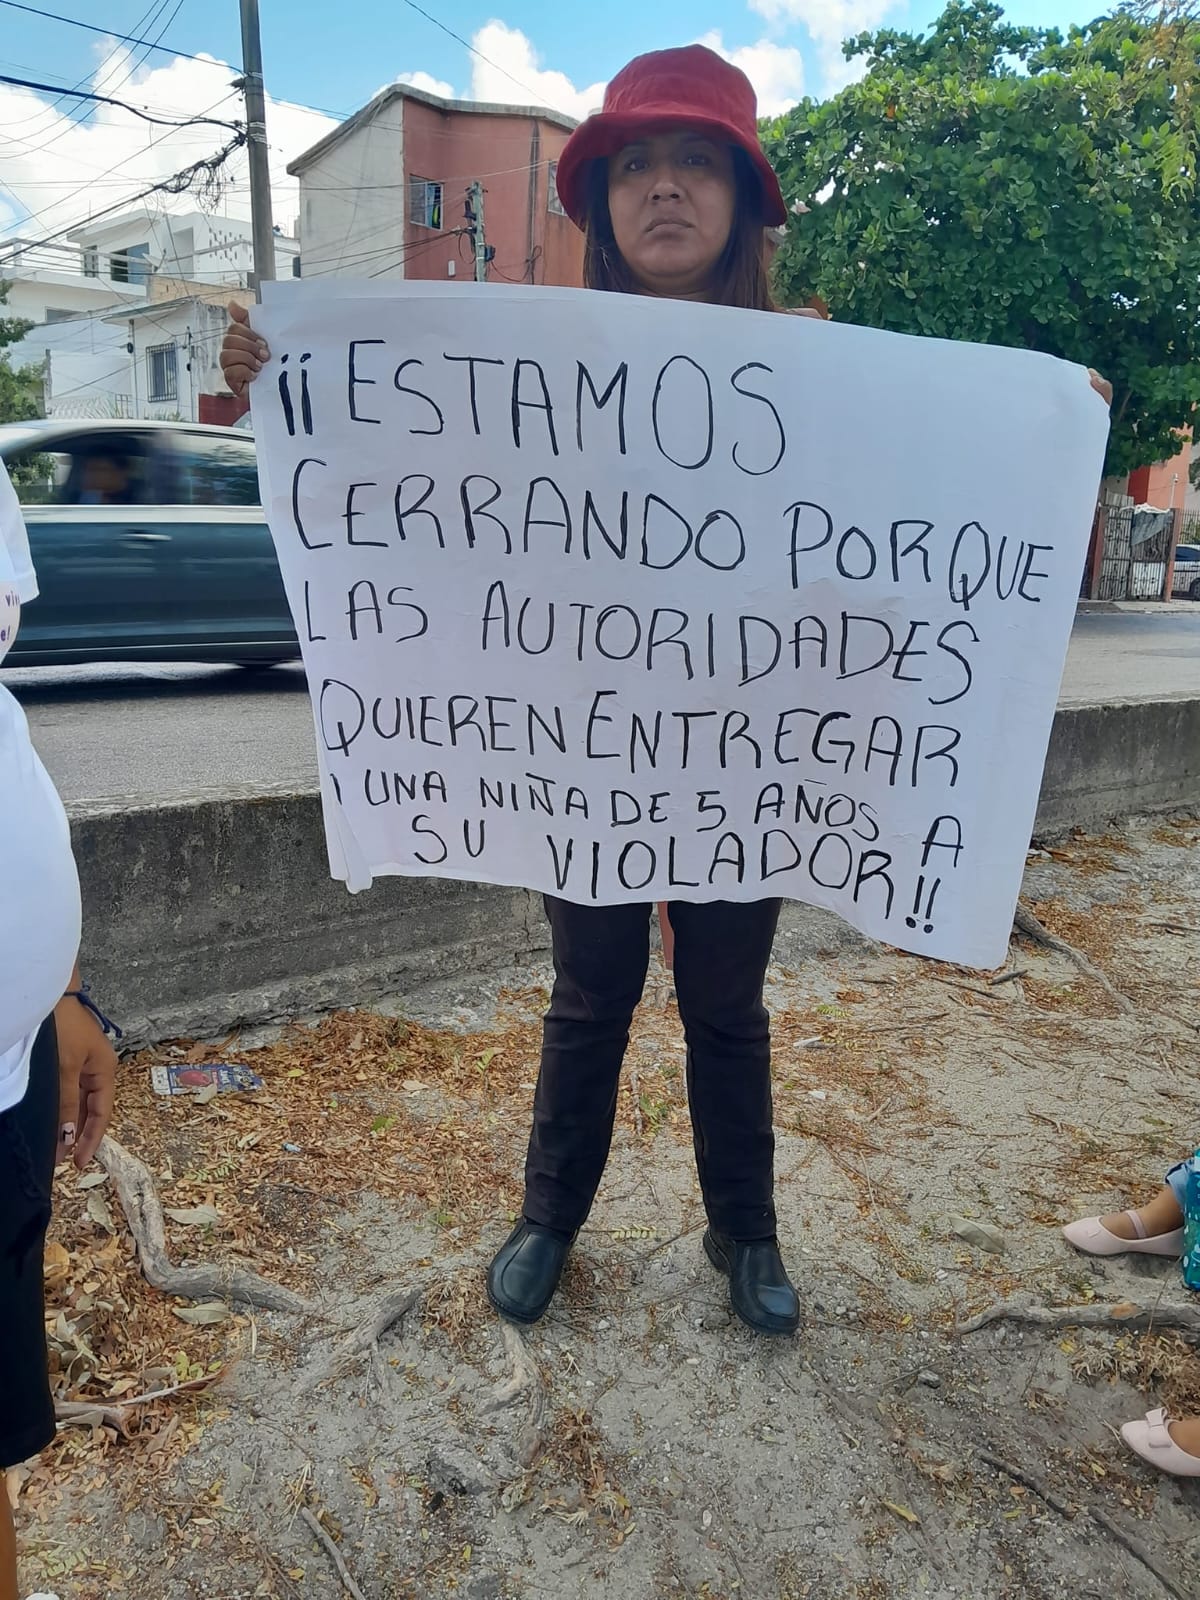 ¡¡ESTAMOS
CERRANDO PORQUE
LAS AUTORIDADES
QUIEREN ENTREGAR
UNA NIÑA DE 5 AÑOS A
SU VIOLADOR!!